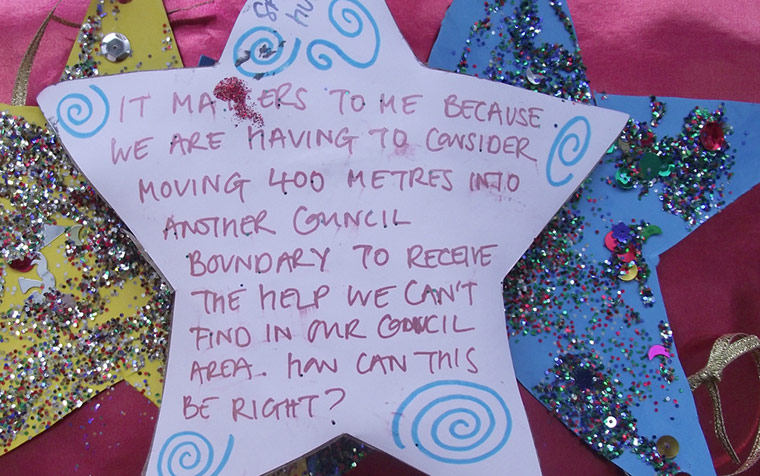 IT MATTERS TO ME BECAUSE
WE ARE HAVING TO CONSIDER
MOVING 400 METRES INTO
ANOTHER COUNCIL
BOUNDARY TO RECEIVE
THE HELP WE CAN'T
FIND IN OUR COUNCIL
AREA. HOW CAN THIS
BE RIGHT?